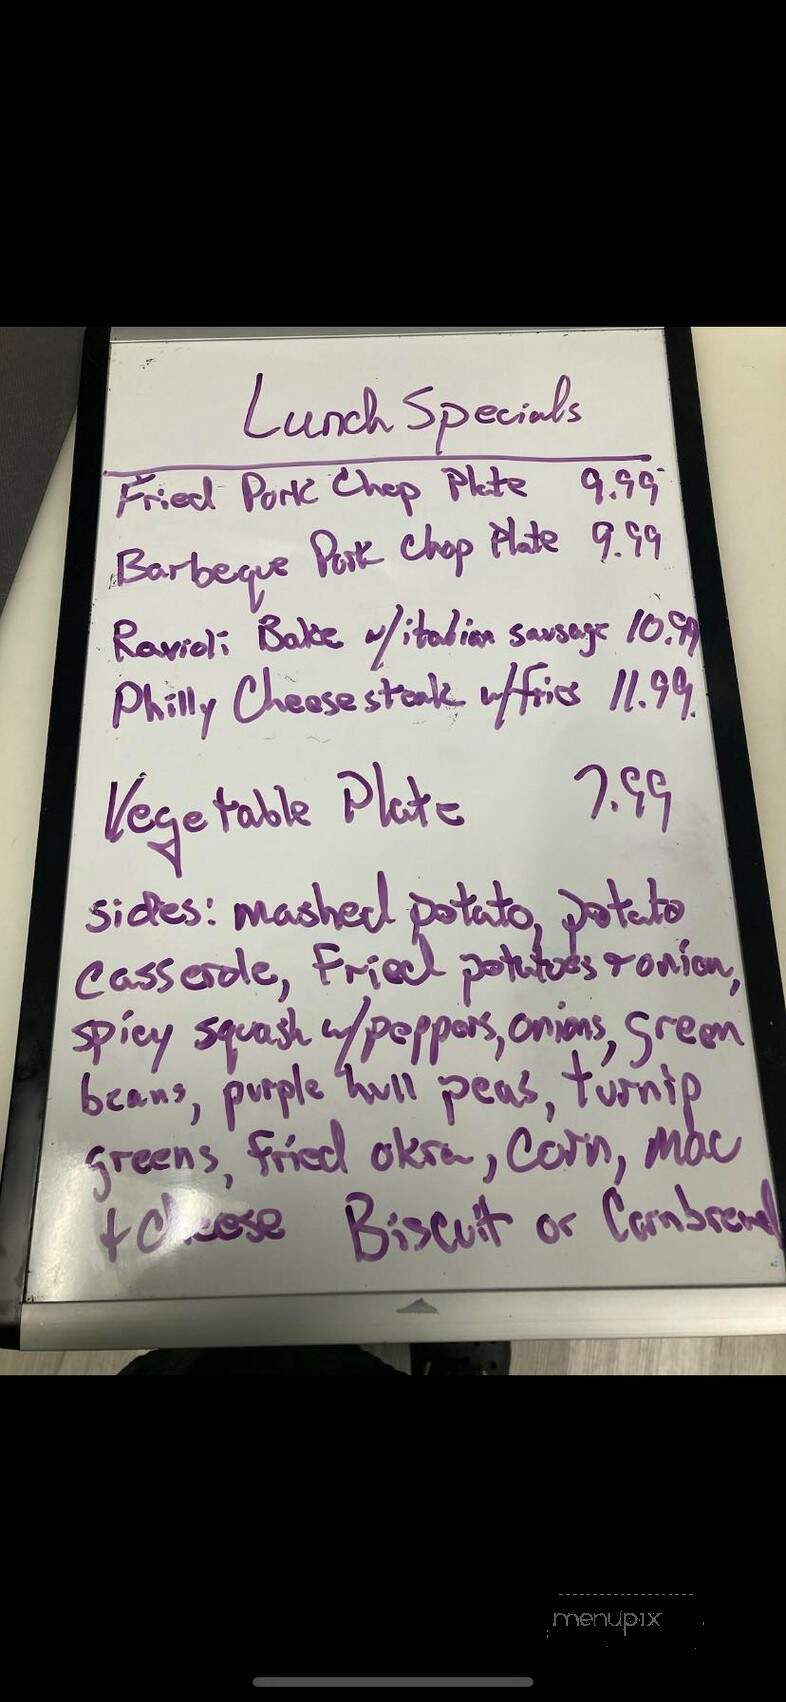 Lunch Specials
Fried Pork Chop Plate 9.99
Barbeque Pork Chop Plate 9.99
Ravioli Bake w/italian sausage 10.99
Philly Cheese steak w/fries 11.99
Vegetable Plate 7.99
sides: mashed potato, potato
casserole, Fried potatoes + onion,
spicy squash w/peppers, onions, green
beans, purple hull peas, turnip
greens, fried okra, corn, mac
+ cheese Biscuit or Cornbread
menupix